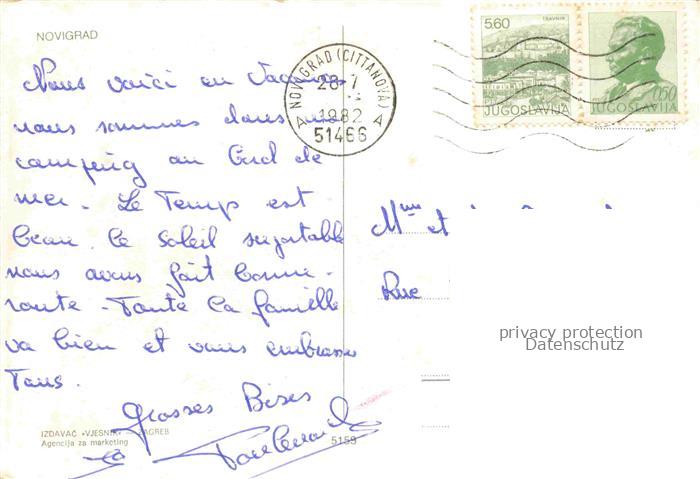 NOVIGRAD
Nous voici en Vacances
nous sommes dans un
camping au bord de
mer. Le Temps est
beau. le soleil suportable
nous avons fait bonne
route. Toute la famille
va bien et vous embrasse
Tous.
Grosses Bises
IZDAVAČ »VJESNIK« — ZAGREB
Agencija za marketing
5153
NOVIGRAD (CITTANOVA)
28-7
1982
51466
A A
5.60
TRAVNIK
JUGOSLAVIJA
0.50
JUGOSLAVIJA
Mme et
Rue
privacy protection
Datenschutz